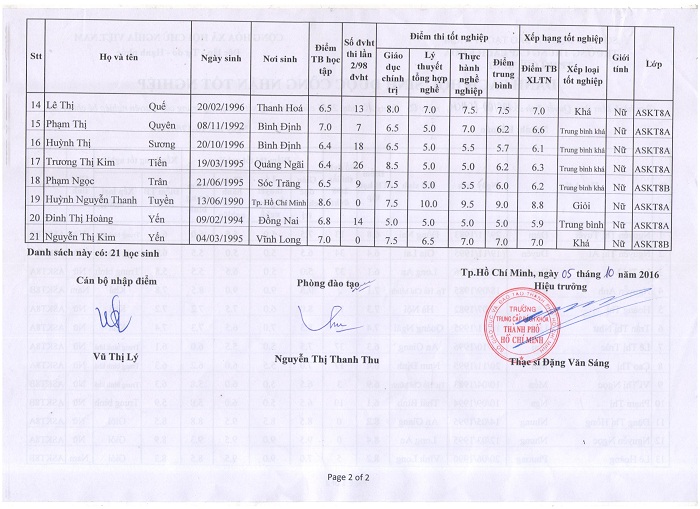 Stt Họ và tên Ngày sinh Nơi sinh Điểm TB học tập Số đvht thi lần 2/98 đvht Điểm thi tốt nghiệp Xếp hạng tốt nghiệp Giới tính Lớp
Giáo dục chính trị Lý thuyết tổng hợp nghề Thực hành nghề nghiệp Điểm trung bình Điểm TB XLTN Xếp loại tốt nghiệp
14 Lê Thị Quế 20/02/1996 Thanh Hoá 6.5 13 8.0 7.0 7.5 7.5 7.0 Khá Nữ ASKT8A
15 Phạm Thị Quyên 08/11/1992 Bình Định 7.0 7 6.5 5.0 7.0 6.2 6.6 Trung bình khá Nữ ASKT8A
16 Huỳnh Thị Sương 20/10/1996 Bình Định 6.4 18 6.5 5.0 5.5 5.7 6.1 Trung bình khá Nữ ASKT8A
17 Trương Thị Kim Tiến 19/03/1995 Quảng Ngãi 6.4 26 8.5 5.0 5.0 6.2 6.3 Trung bình khá Nữ ASKT8A
18 Phạm Ngọc Trân 21/06/1995 Sóc Trăng 6.5 9 7.5 5.0 5.5 6.0 6.2 Trung bình khá Nữ ASKT8B
19 Huỳnh Nguyễn Thanh Tuyền 13/06/1990 Tp. Hồ Chí Minh 8.6 0 7.5 10.0 9.5 9.0 8.8 Giỏi Nữ ASKT8A
20 Đinh Thị Hoàng Yến 09/02/1994 Đồng Nai 6.8 14 5.0 5.0 5.0 5.0 5.9 Trung bình Nữ ASKT8A
21 Nguyễn Thị Kim Yến 04/03/1995 Vĩnh Long 7.0 0 7.5 6.5 7.0 7.0 7.0 Khá Nữ ASKT8B
Danh sách này có: 21 học sinh
Tp.Hồ Chí Minh, ngày 05 tháng 10 năm 2016
Cán bộ nhập điểm Phòng đào tạo Hiệu trưởng
TRƯỜNG
THÀNH PHỐ
HỒ CHÍ MINH
Vũ Thị Lý Nguyễn Thị Thanh Thu Thạc sĩ Đặng Văn Sáng
Page 2 of 2